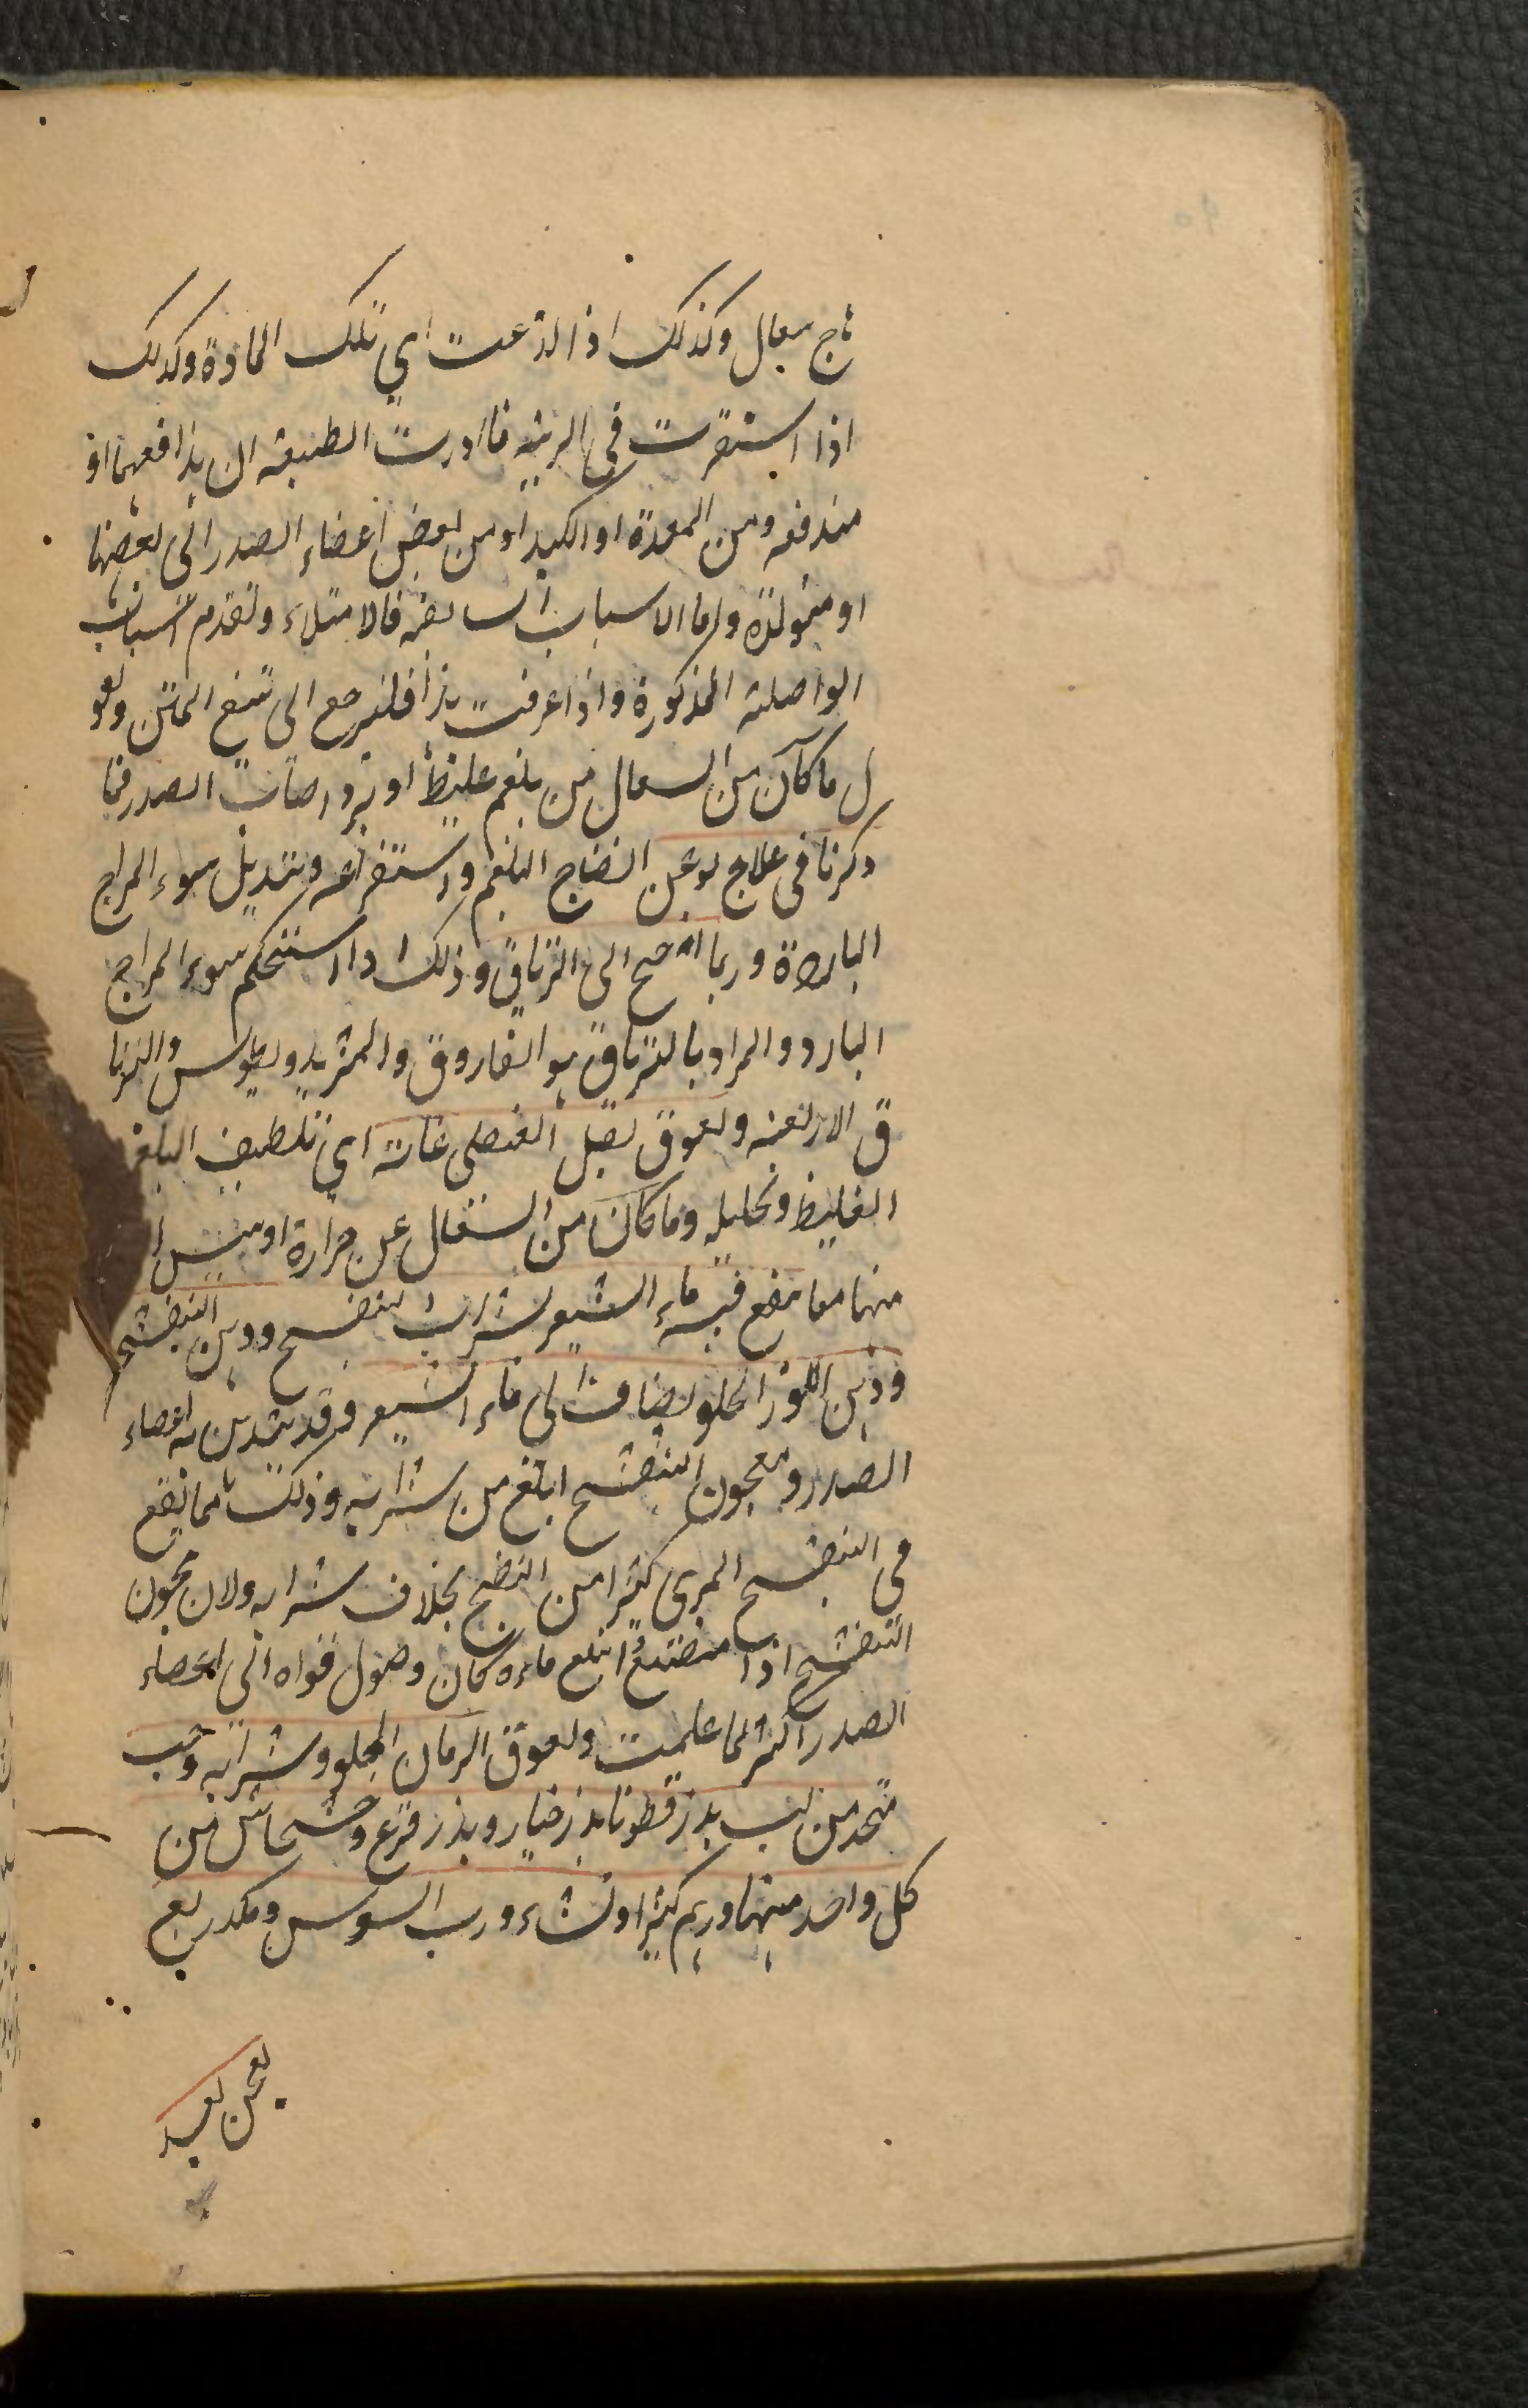 ثاج سعال وكذلك اذا لذعت اي تلك المادة وكذلك
اذا استقرت في الرية فاادرت الطبيعة ان يدافعها او
مندفعه ومن المعدة او الكبد او من بعض اعضاء الصدر الى بعضها
او متولدة واما الاسباب السابقة فالامتلاء وتقدم اسباب
الواصلة المذكورة واذا عرفت هذا فلنرجع الى تتبع المتن ونقو
ل ما كان من السعال من بلغم غليظ او برد اصاب الصدر فما
ذكرنا في علاج لوعن انضاج البلغم واستفراغه وتبديل سوء المزاج
الباردة وربما احتيج الى الترياق وذلك اذا استحكم سوء المزاج
البارد والمراد بالترياق هو الفاروق والمثريديطوس والتريا
ق الاربعة ولعوق بصل العنصل غاية اي تلطيف البلغم
الغليظ وتحليله وما كان من السعال عن حرارة او يبس ا
منهما معا ينفع فيه ماء الشعير بشراب بنفسج ودهن البنفسج
ودهن اللوز الحلو يضاف الى ماء الشعير وقد يدهن به اعضاء
الصدر ومعجون البنفسج ابلغ من شرابه وذلك مما يقع
في البنفسج المربى كثيرا من النضج بخلاف شرابه ولان معجون
البنفسج اذا مضغ وابتلع ماءه كان وصول قواه الى اعضاء
الصدر اكثر لما علمت ولعوق الرمان الحلو وشرابه وحب
متخذ من لب بذر قطونا بذر خيار وبذر قرع وخشخاش من
كل واحد منهما درهم كثيرا ونشاء ورب السوس ومكد ربع
يعجن بعد